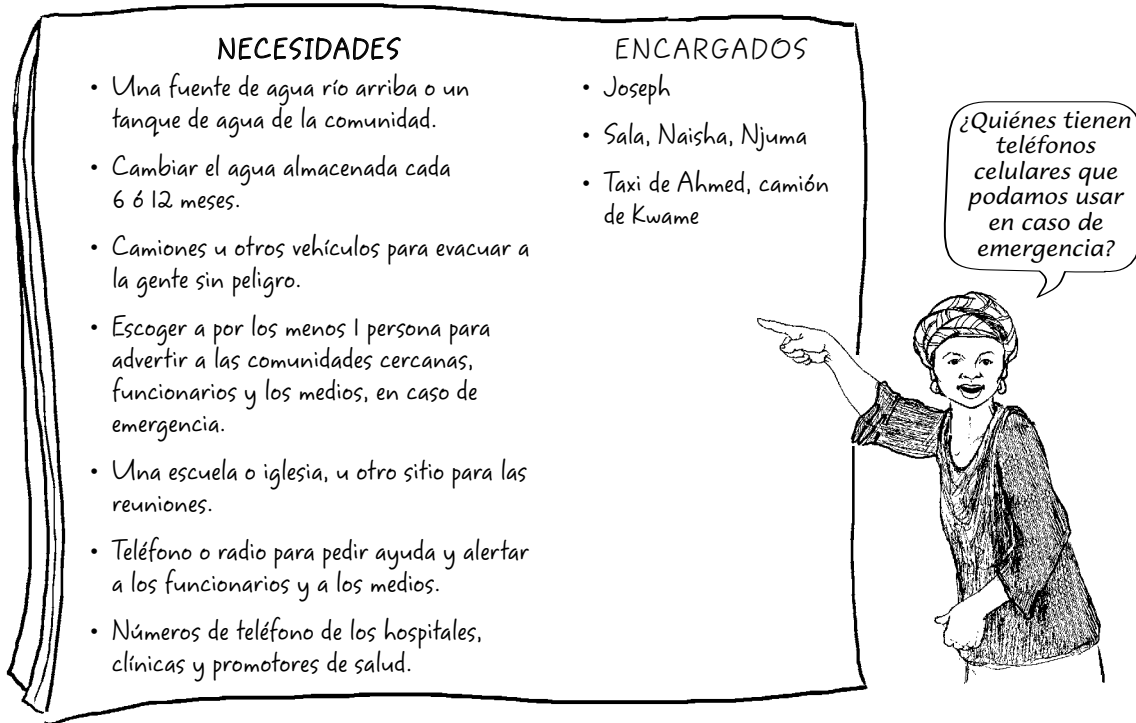 NECESIDADES
• Una fuente de agua río arriba o un
tanque de agua de la comunidad.
• Cambiar el agua almacenada cada
6 ó 12 meses.
• Camiones u otros vehículos para evacuar a
la gente sin peligro.
• Escoger a por los menos 1 persona para
advertir a las comunidades cercanas,
funcionarios y los medios, en caso de
emergencia.
• Una escuela o iglesia, u otro sitio para las
reuniones.
• Teléfono o radio para pedir ayuda y alertar
a los funcionarios y a los medios.
• Números de teléfono de los hospitales,
clínicas y promotores de salud.
ENCARGADOS
• Joseph
• Sala, Naisha, Njuma
• Taxi de Ahmed, camión
de Kwame
¿Quiénes tienen
teléfonos
celulares que
podamos usar
en caso de
emergencia?